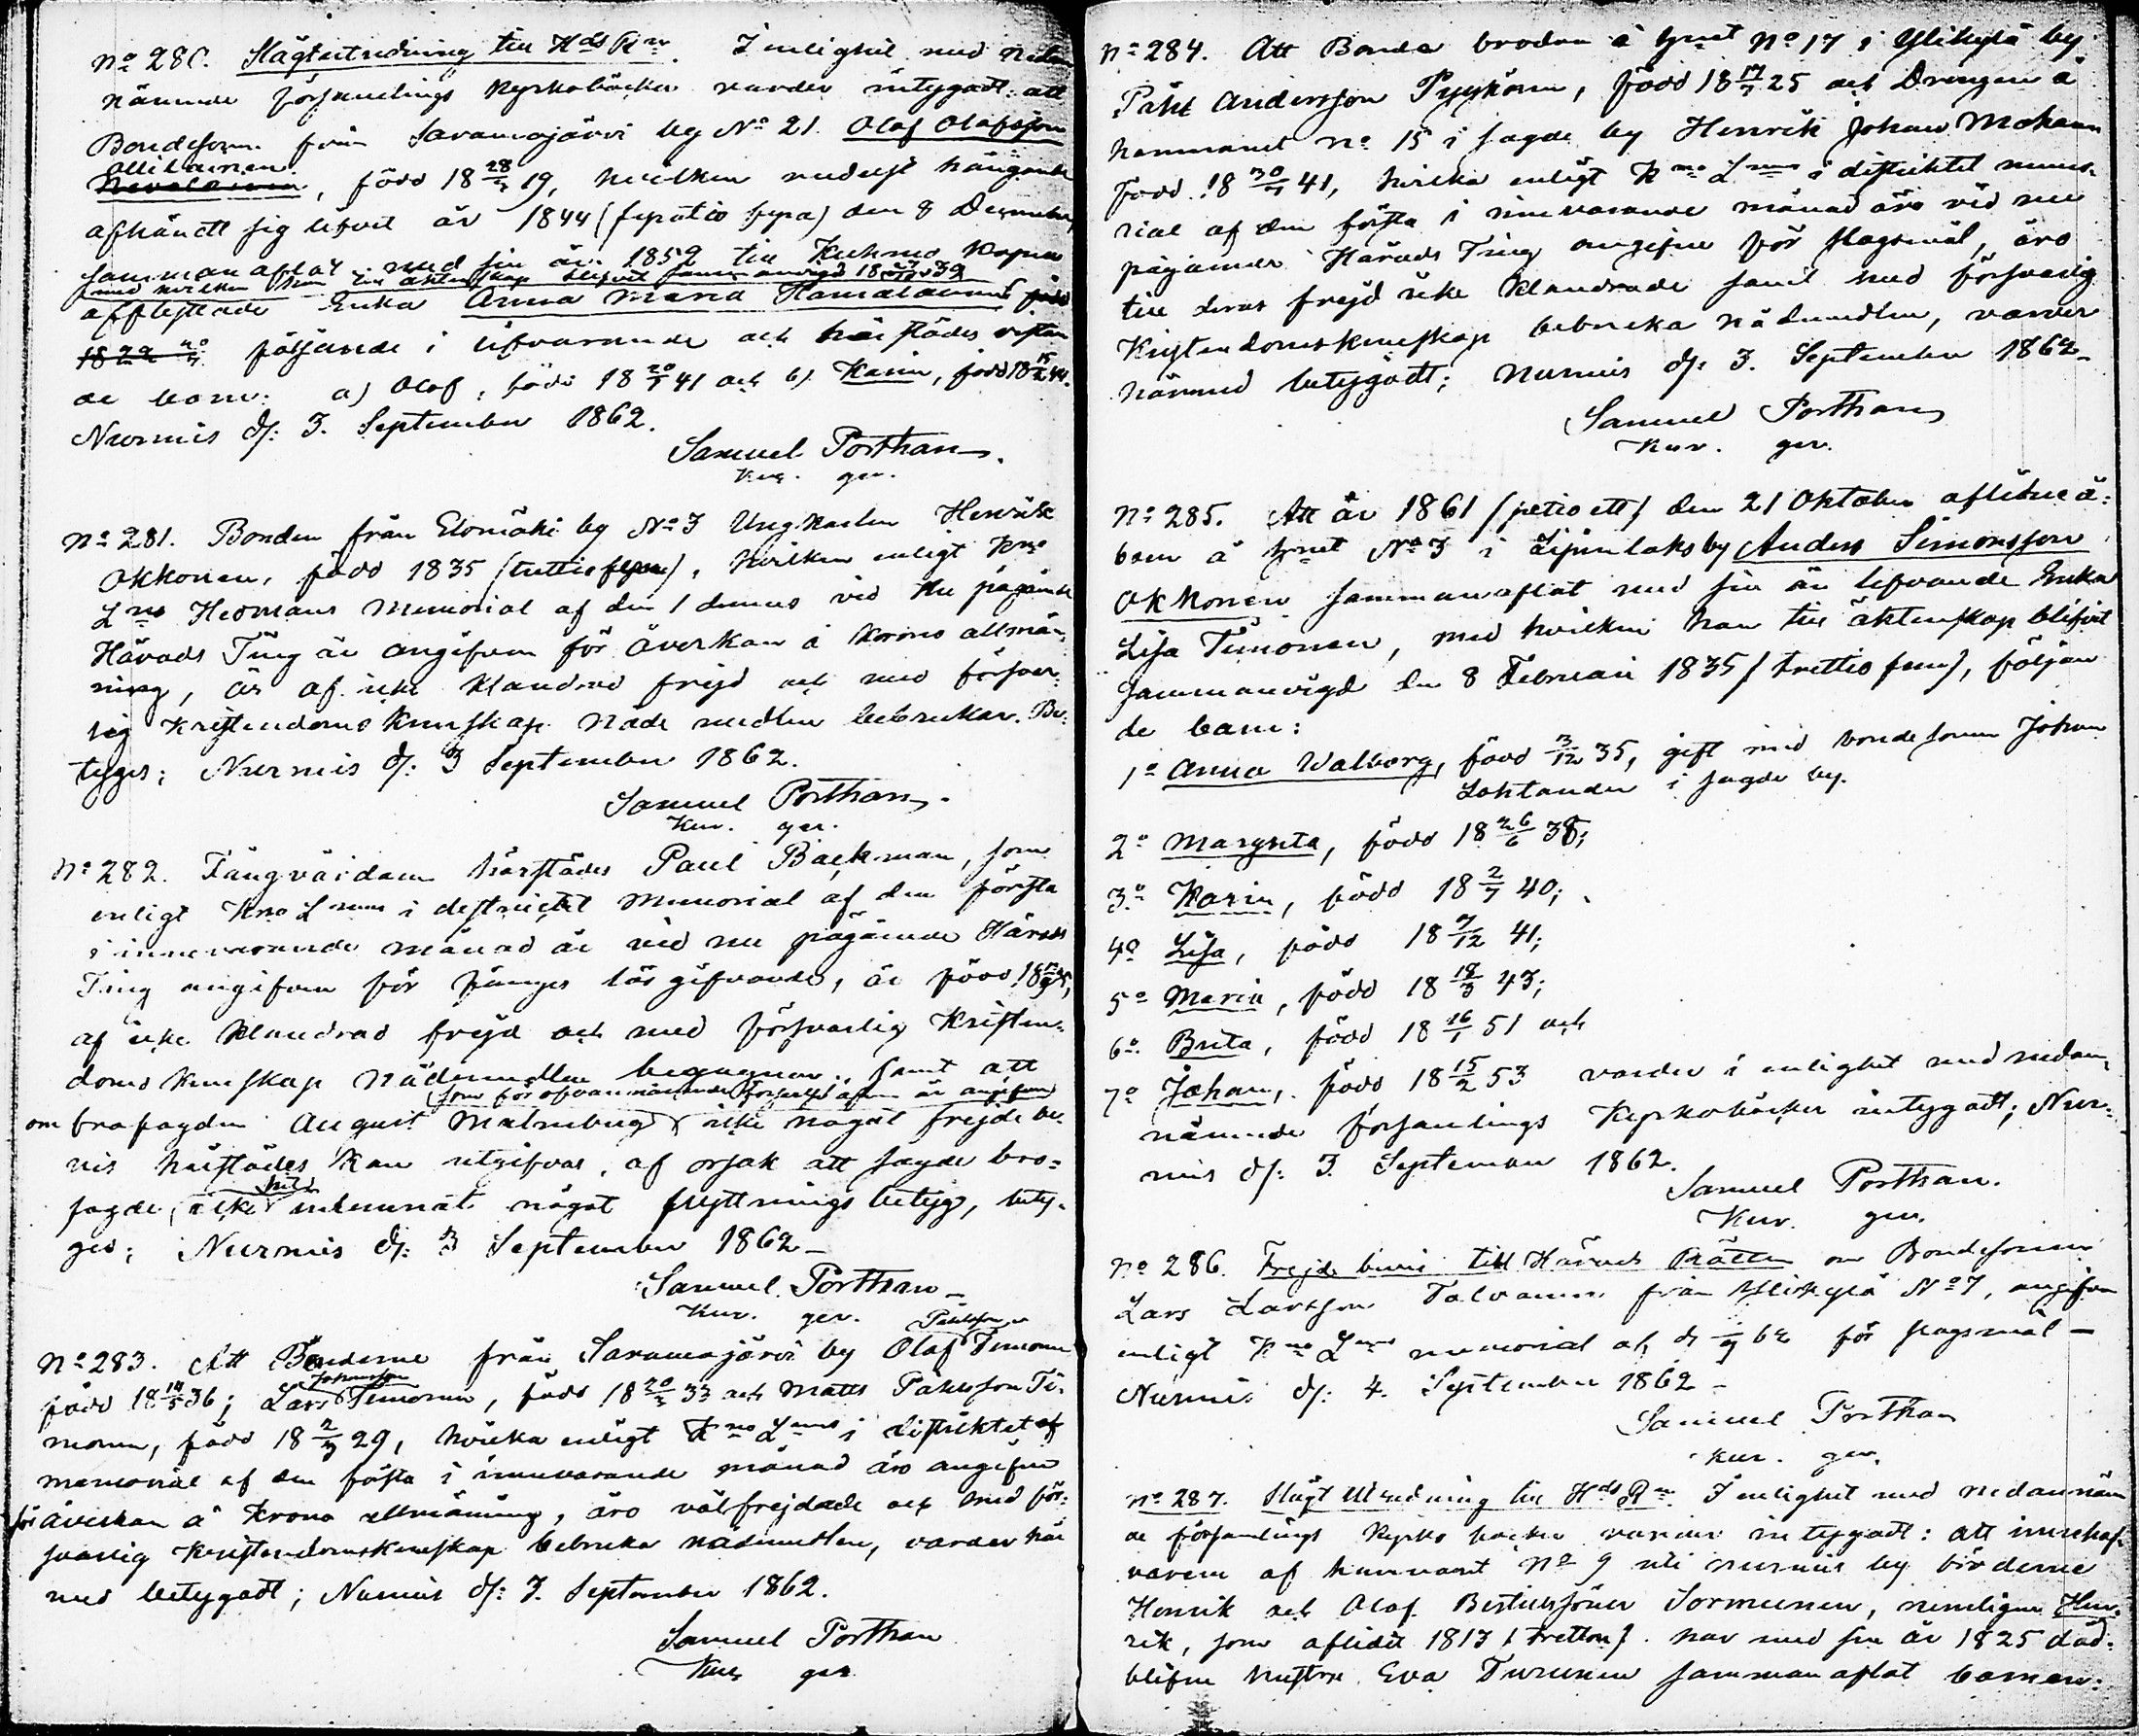 No 280. Slägtutredning till Hds Rn. I enlighet med nedan
nämnde församlings Kyrkoböcker varder intygadt: att
Bondesonen från Saramojärvi by No 21. Olof Olofsson
Ollikainen
, född 18 28/2 19, hvilken medelst hängande
afhändt sig lifvet år 1844 (fyratio fyra) den 8 December,
sammanaflat med sin år 1852 till Kuhmo Kapell
med hvilken han till äktenskap blifvit sammanvigd 18 39
afflyttade Enka Anna Maria född
1822 följande i lifvarande och härstädes vistan
de barn: a) Olof, född 18 20/1 41 och b) Karin, född 18 15/2 44.
Nurmis d/: 3. September 1862.
Samuel Porthan.
Kur. ger.
No 281. Bonden från Elomäki by No 3 Ungkarlen Henrik
Okkonen, född 1835 (trettiofem), hvilken enligt Kno
Lns Hedmans Memorial af den 1 dennes vid nu pågående
Härads Ting är angifven för åverkan å Krono allmän-
ning, är af icke klandrad frejd och med försvar-
lig Kristendoms kunskap Nåde medlen bebrukar. Be-
tygas; Nurmis d/: 3 September 1862.
Samuel Porthan.
Kur. ger.
No 282. Fångvärdaren härstädes Paul Backman, som
enligt Kno Lnns i destrictet Memorial af den första
i innevarande månad är vid nu pågående Härads
Ting angifven för fånges lösgifvande, är född 18
af icke klandrad frejd och med försvarlig Kristen-
doms kunskap Nådemedlen begagnar, samt att
som för ofvannämnde är angifven
om brofogden August Malmberg icke något frejdebe-
vis härstädes kan utgifvas, af orsak att sagde bro-
fogde icke inlemnat något flyttnings betyg, bety-
gas; Nurmis d/: 3 September 1862
Samuel Porthan
Kur. ger.
Påhlsson
No 283. Att Bönderne från Saramojärvi by Olof Timonen
Johansson
född 18 14/5 36; Lars Timonen, född 18 20/2 33 och Matts Påhlsson Ti-
monen, född 18 2/9 29, hvilka enligt Kno Lnns i distriktet
memorial af den första i innevarande månad äro angifne
för åverkan å Krono allmänning, äro välfrejdade och med för-
svarlig Kristendomskunskap bebruka nådemedlen, varder här
med betygadt; Nurmis d/: 3. September 1862.
Samuel Porthan
Kur. ger.
No 284. Att Bonde brodren å hmnet No 17 i Ylikylä by
Påhl Andersson Pyykönen, född 18 17/7 25 och Drängen å
hemmanet No 15 i sagde by Henrik Johan Mohanen
född 18 30/7 41, hvilka enligt Kno Lnns i distriktet memo-
rial af den första i innevarande månad äro vid nu
pågående Härads Ting angifne för slagsmål, äro
till deras frejd icke klandrade samt med försvarlig
Kristendomskunskap bebruka nådemedlen, varder
härmed betygadt; Nurmis d/: 3. September 1862
Samuel Porthan
Kur. ger.
No 285. Att år 1861 (sextioett) den 21 Oktober aflidne å-
boen å hmnet No 3 i Lipinlaks by Anders Simonsson
Okkonen sammanaflat med sin än lefvande Enka
Lisa Timonen, med hvilken han till äktenskap blifvit
sammanvigd den 8 Februari 1835 (trettio fem), följan
de barn:
1o Anna Walborg, född 3/12 35, gift med bondesonen Johan
Loktander i sagde by.
2o Margreta, född 18 26/6 38;
3o Karin, född 18 2/7 40;
4o Lisa, född 18 7/12 41;
5o Maria, född 18 18/3 43;
6o Brita, född 18 16/1 51 och
7o Johan, född 18 15/2 53 varder i enlighet med nedan
nämnde församlings Kyrkoböcker intygadt; Nur-
mis d/: 3. September 1862.
Samuel Porthan.
Kur. ger.
No 286. Frejdebevis till Härads Rätten om Bondesonen
Lars Larsson Talvanen från Ylikylä No 7, angifven
enligt Kno Lnns memorial af d 1/9 62 för slagsmål —
Nurmis d/: 4. September 1862 —
Samuel Porthan
Kur. ger.
No 287. Slägt Utredning till Hds Rn. I enlighet med nedannämn
de församlings Kyrko böcker varder intygadt: att innehaf-
varena af hemmanet No 9 uti Nurmis by bröderne
Henrik och Olof Bertilssöner Sormunen, nemligen Hen-
rik, som aflidit 1813 (tretton) har med sin år 1825 död-
blifne hustru Eva Turunen sammanaflat barnen: